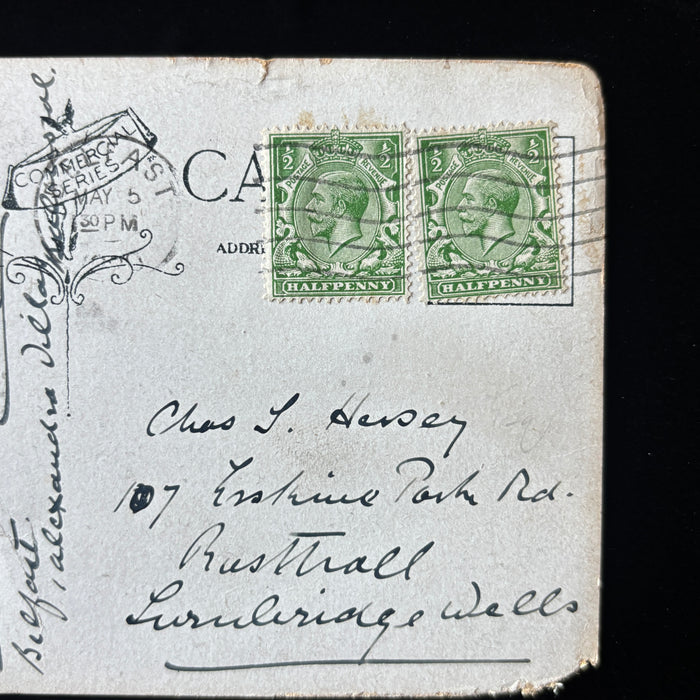 COMMERCIAL
SERIES
AST
MAY 5
30 PM
CA
ADDRE
1/2 1/2
POSTAGE REVENUE
HALFPENNY
1/2 1/2
POSTAGE REVENUE
HALFPENNY
Chas S. Hersey
107 Erskine Park Rd.
Rusthall
Tunbridge Wells
Belfast.
Alexandra Villa